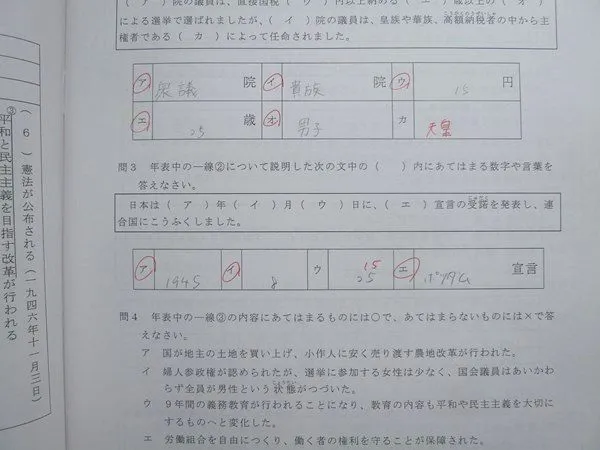 （ア）院の議員は、直接国税（ウ）円以上納める（エ）歳以上の（オ）
による選挙で選ばれましたが、（イ）院の議員は、皇族や華族、高額納税者の中から主
権者である（カ）によって任命されました。
ア 衆議 院 イ 貴族 院 ウ 15 円
エ 25 歳 オ 男子 カ 天皇
問３ 年表中の―線②について説明した次の文中の（ ）内にあてはまる数字や言葉を
答えなさい。
日本は（ア）年（イ）月（ウ）日に、（エ）宣言の受諾を発表し、連
合国にこうふくしました。
ア 1945 イ 8 ウ 25 15 エ ポツダム 宣言
問４ 年表中の―線③の内容にあてはまるものには○で、あてはまらないものには×で答
えなさい。
ア 国が地主の土地を買い上げ、小作人に安く売り渡す農地改革が行われた。
イ 婦人参政権が認められたが、選挙に参加する女性は少なく、国会議員はあいかわ
らず全員が男性という状態がつづいた。
ウ ９年間の義務教育が行われることになり、教育の内容も平和や民主主義を大切に
するものへと変化した。
エ 労働組合を自由につくり、働く者の権利を守ることが保障された。
（６）憲法が公布される（一九四六年十一月三日）
③平和と民主主義を目指す改革が行われる